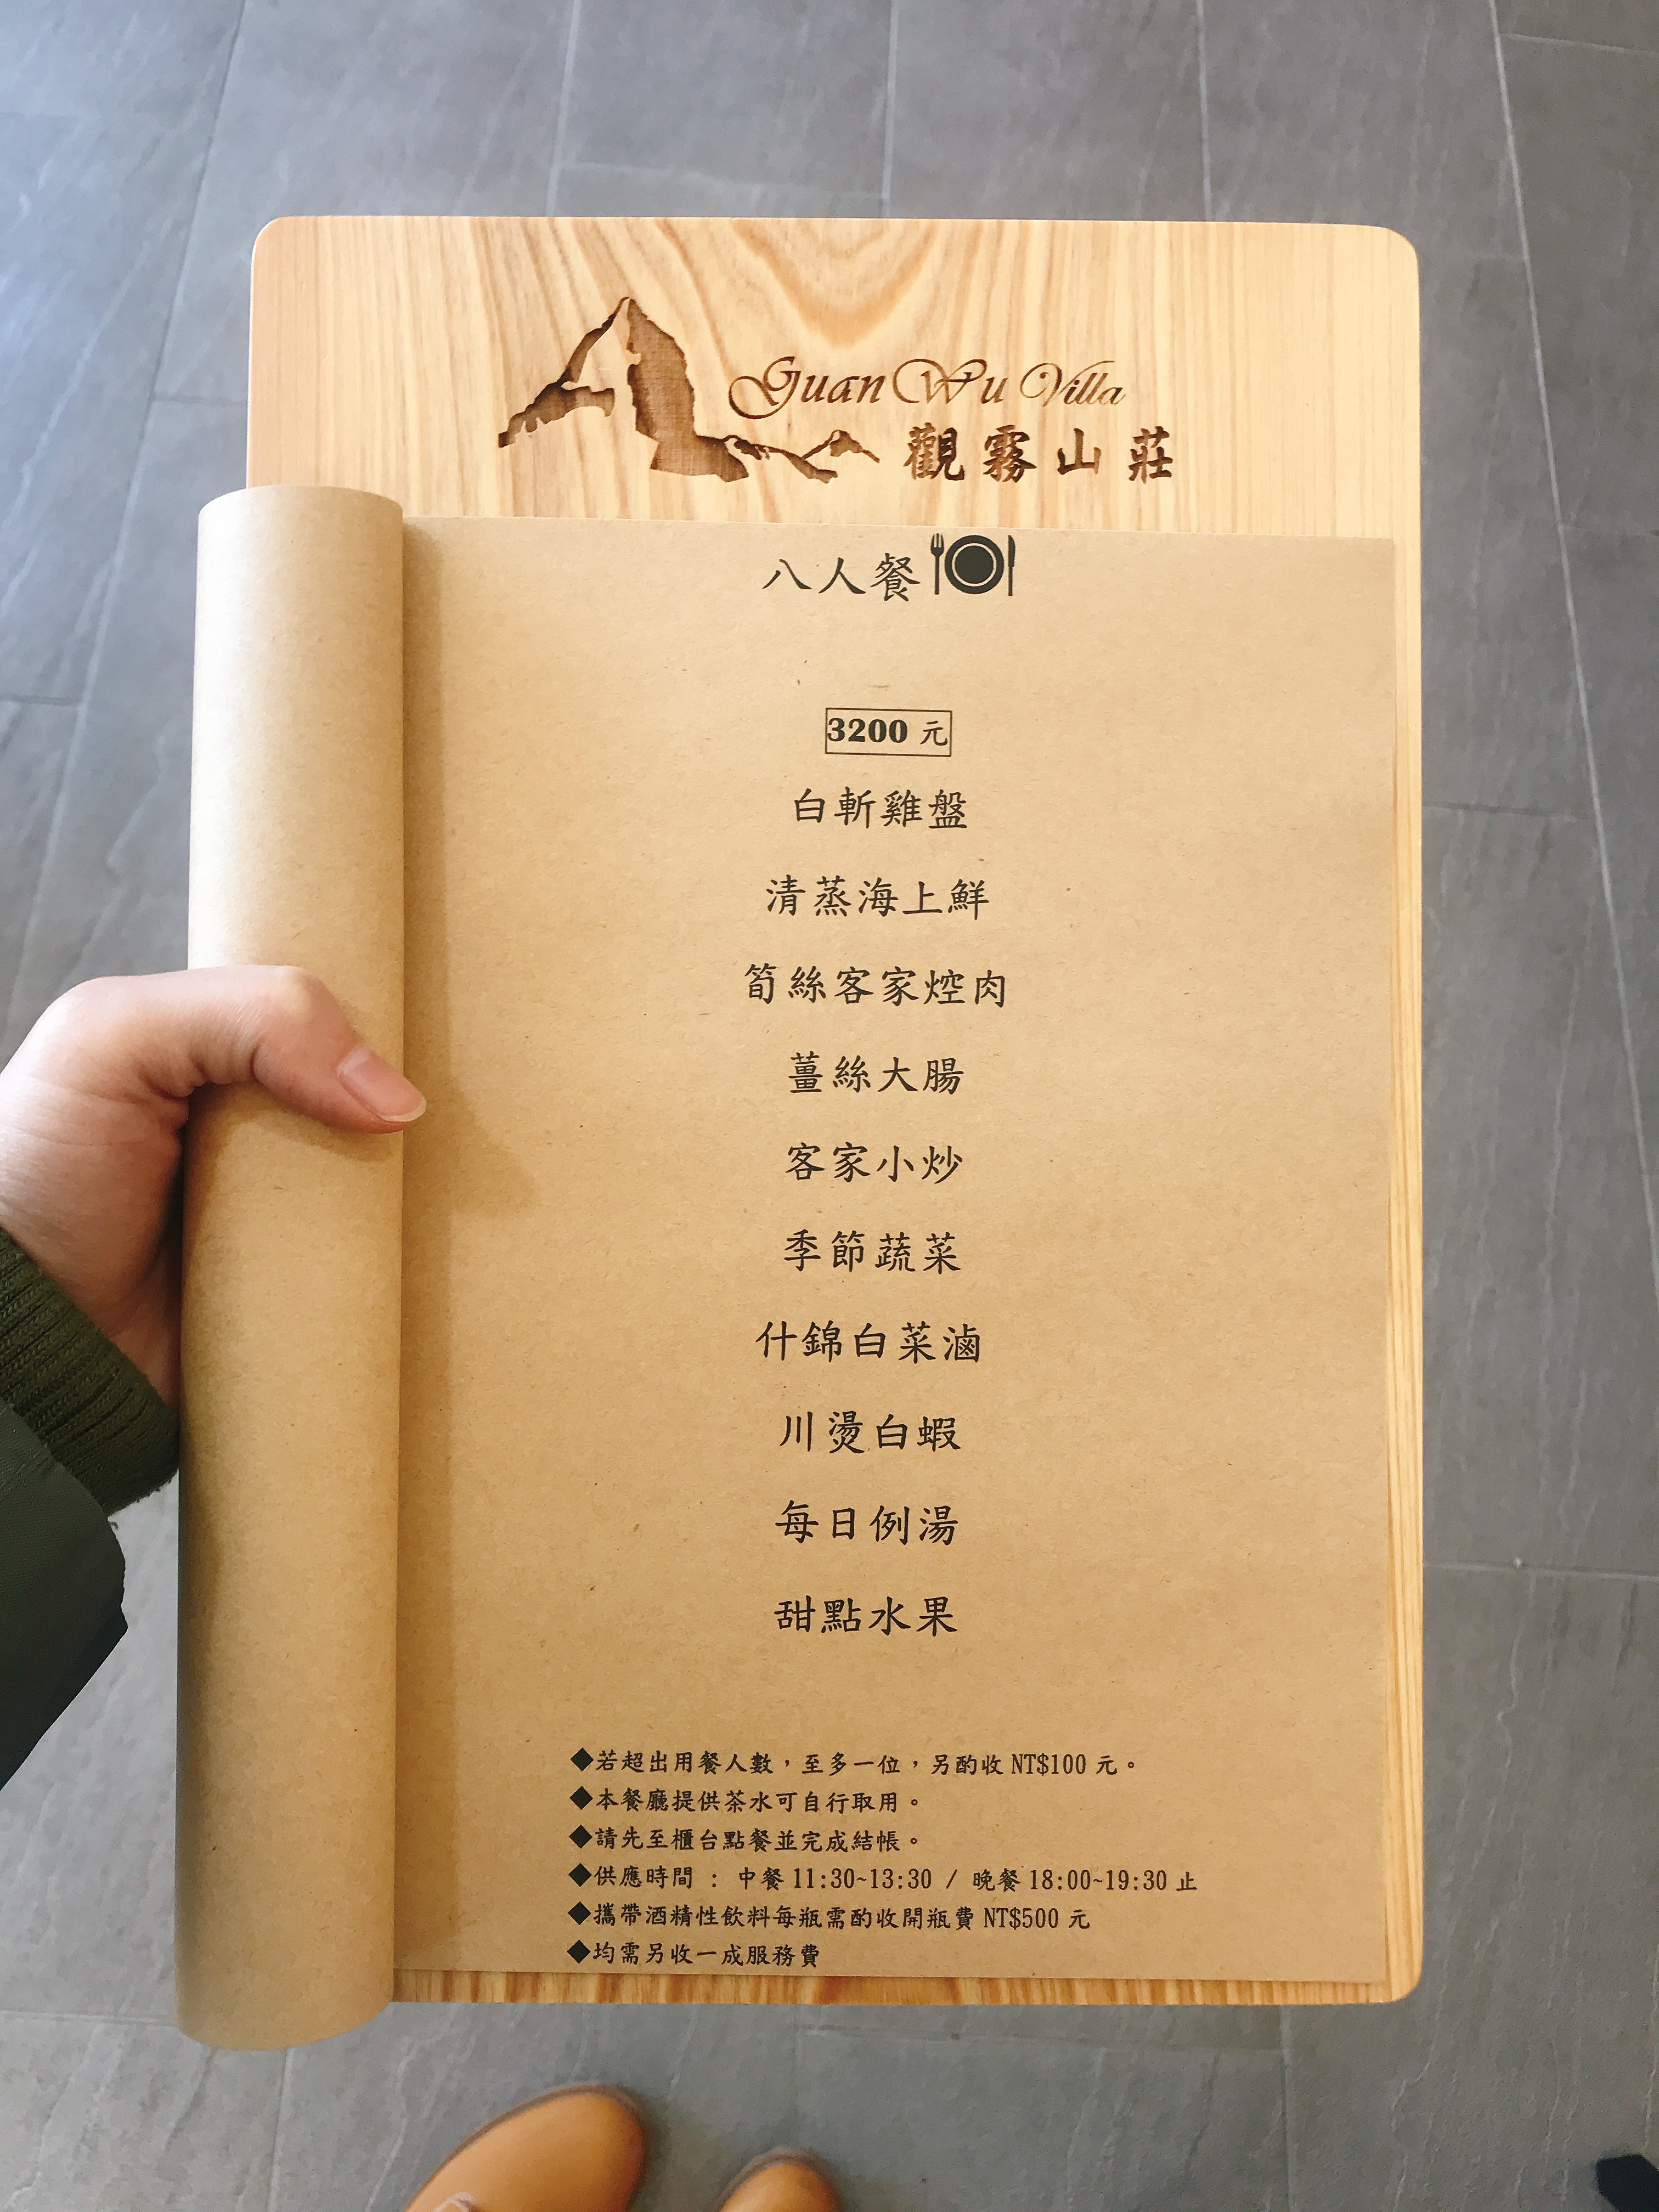 Guan Wu Villa
觀霧山莊
八人餐
3200 元
白斬雞盤
清蒸海上鮮
筍絲客家焢肉
薑絲大腸
客家小炒
季節蔬菜
什錦白菜滷
川燙白蝦
每日例湯
甜點水果
◆若超出用餐人數，至多一位，另酌收 NT$100 元。
◆本餐廳提供茶水可自行取用。
◆請先至櫃台點餐並完成結帳。
◆供應時間 : 中餐 11:30~13:30 / 晚餐 18:00~19:30 止
◆攜帶酒精性飲料每瓶需酌收開瓶費 NT$500 元
◆均需另收一成服務費